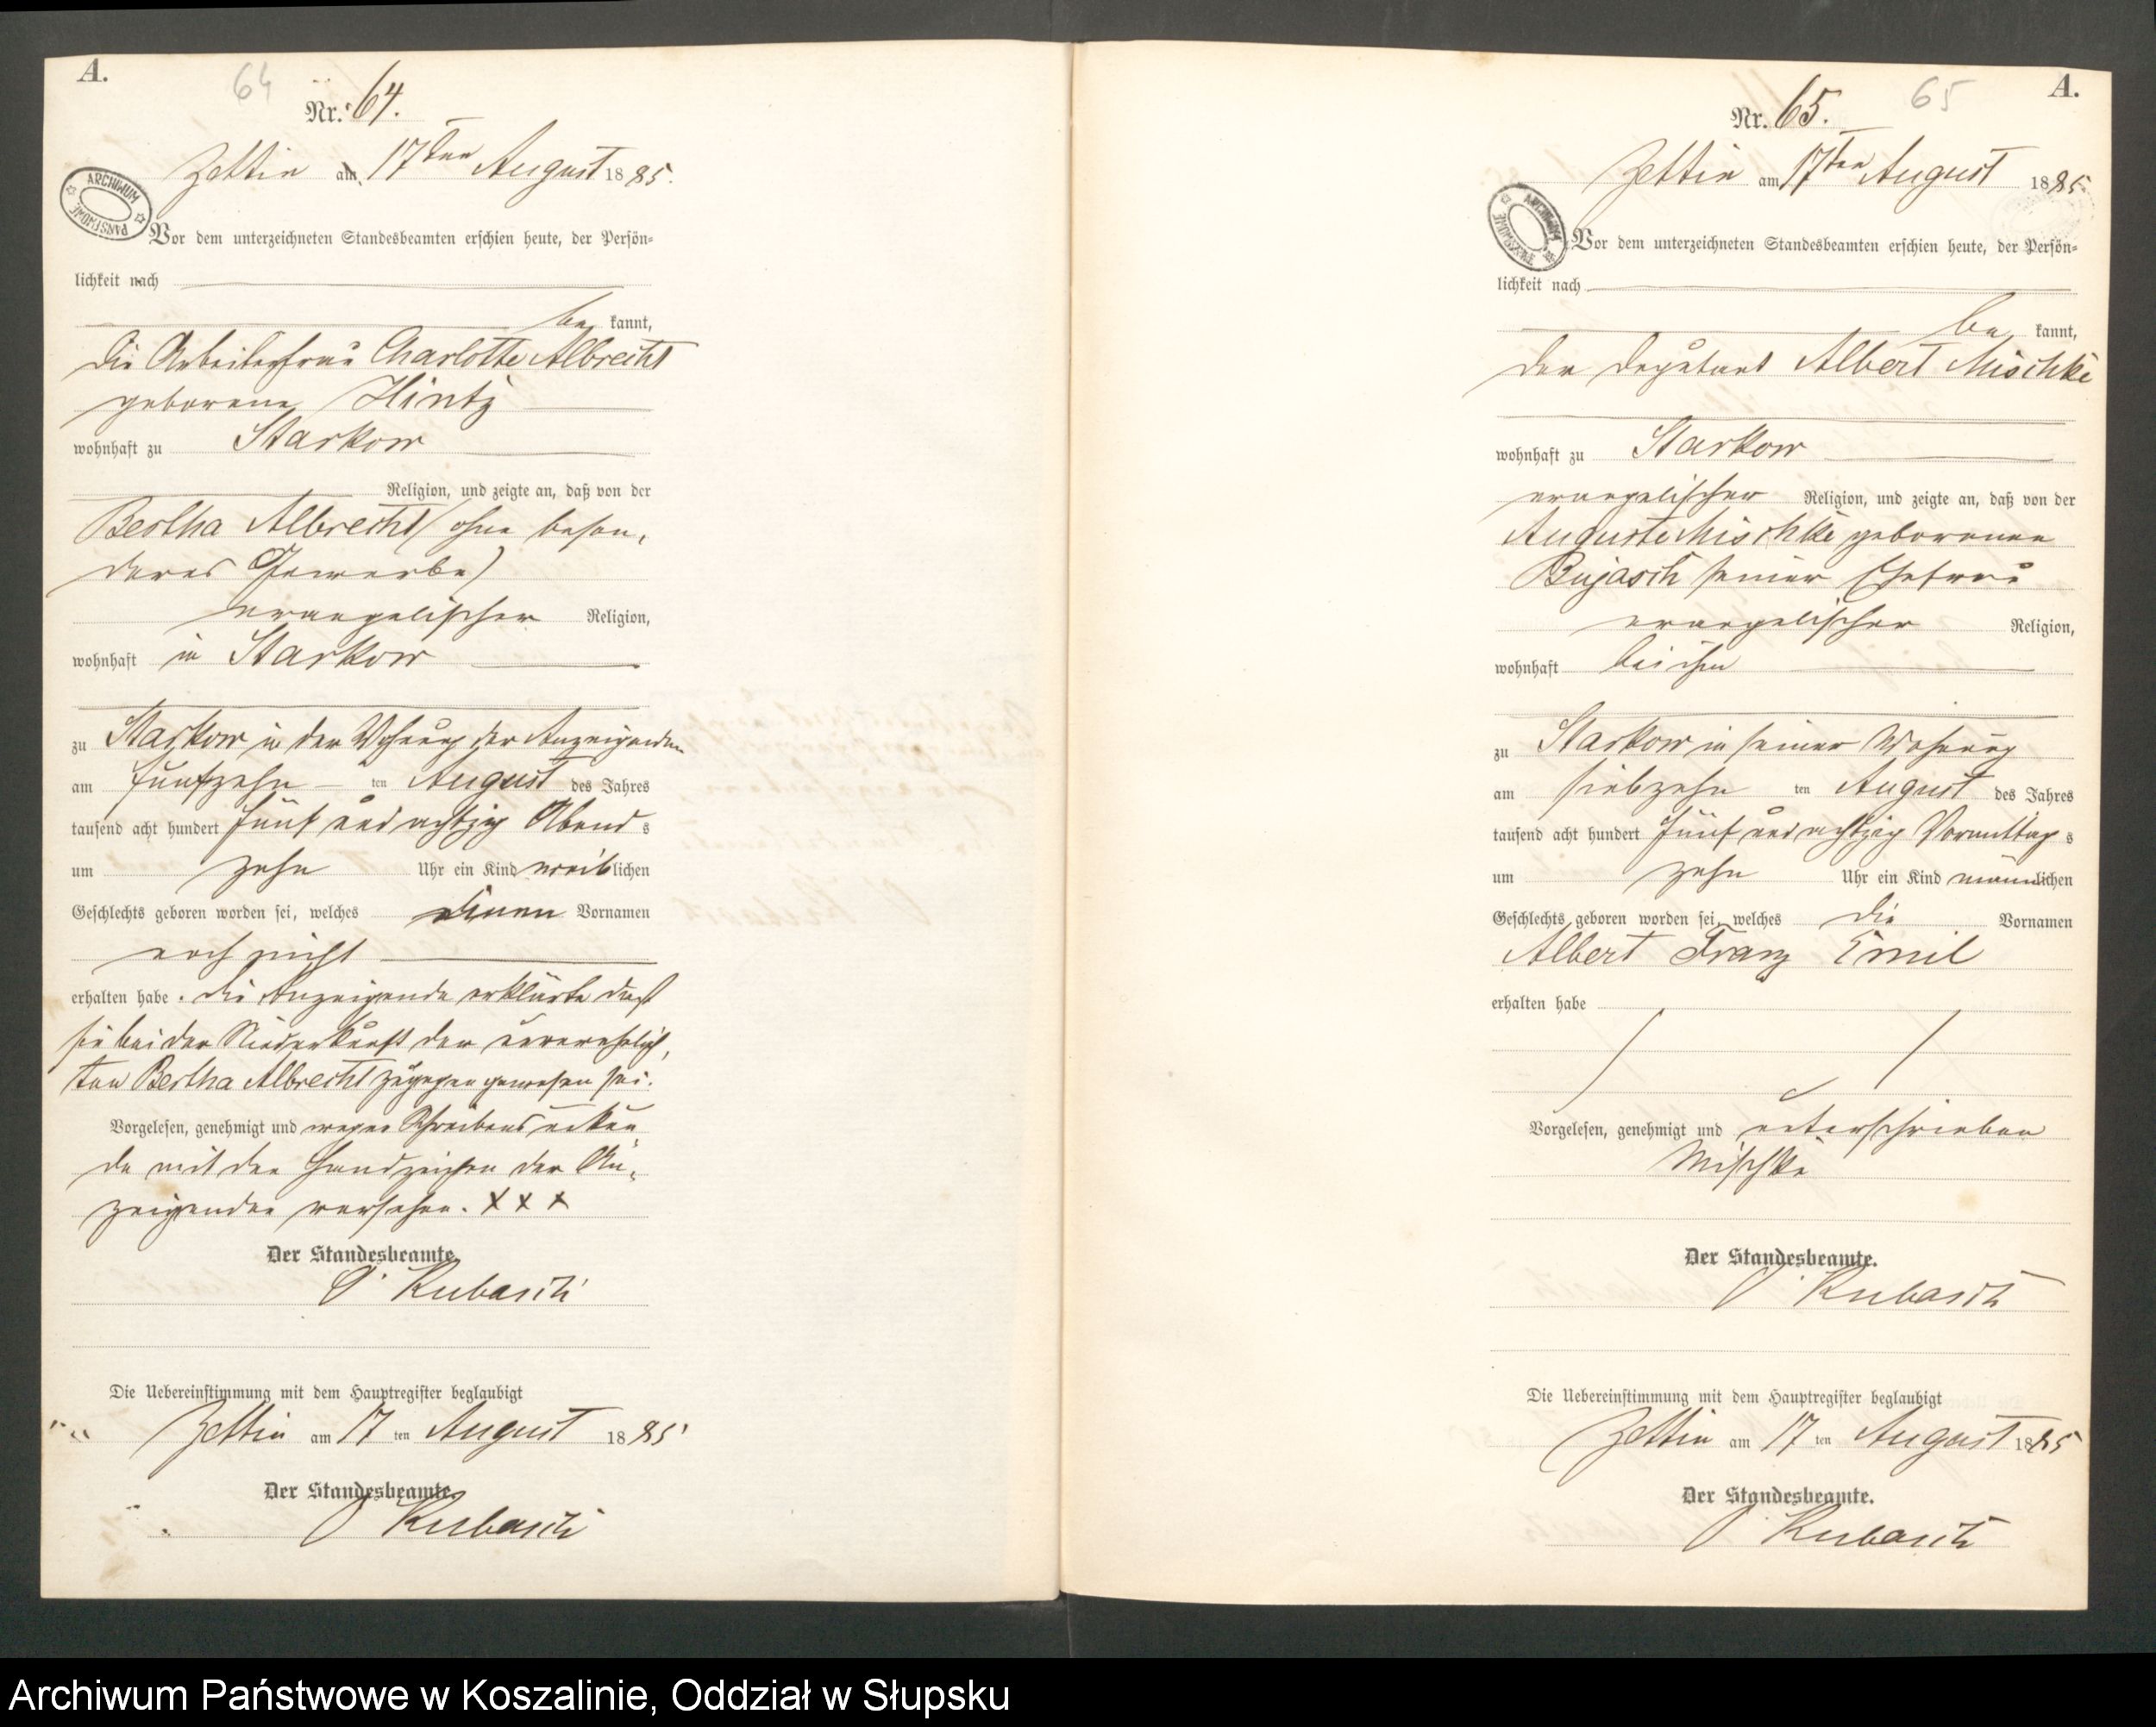 A.
64
Nr. 64.
Zettin am 17ten August 1885.
ARCHIWUM PAŃSTWOWE
Vor dem unterzeichneten Standesbeamten erschien heute, der Persön=
lichkeit nach
be kannt,
die Arbeiterfrau Charlotte Albrecht
geborene Hintz
wohnhaft zu Starkow
Religion, und zeigte an, daß von der
Bertha Albrecht (ohne beson,
deres Gewerbe)
evangelischer Religion,
wohnhaft in Starkow
zu Starkow in der Wohnung der Anzeigenden
am fünfzehn ten August des Jahres
tausend acht hundert fünf und achtzig Abends
um zehn Uhr ein Kind weiblichen
Geschlechts geboren worden sei, welches einen Vornamen
noch nicht
erhalten habe. Die Anzeigende erklärte daß
sie bei der Niederkunft der unverehelich,
ten Bertha Albrecht zugegen gewesen sei.
Vorgelesen, genehmigt und wegen Schreibensunkun
de mit den Handzeichen der An,
zeigenden versehen. XXX
Der Standesbeamte.
Kubasch
Die Uebereinstimmung mit dem Hauptregister beglaubigt
Zettin am 17 ten August 1885
Der Standesbeamte.
Kubasch
65
A.
Nr. 65.
Zettin am 17ten August 1885
ARCHIWUM PAŃSTWOWE
Vor dem unterzeichneten Standesbeamten erschien heute, der Persön=
lichkeit nach
be kannt,
der Deputant Albert Mischke
wohnhaft zu Starkow
evangelischer Religion, und zeigte an, daß von der
Auguste Mischke geborenen
Bujasch seiner Ehefrau
evangelischer Religion,
wohnhaft bei ihm
zu Starkow in seiner Wohnung
am siebzehn ten August des Jahres
tausend acht hundert fünf und achtzig Vormittags
um zehn Uhr ein Kind männlichen
Geschlechts geboren worden sei, welches die Vornamen
Albert Franz Emil
erhalten habe
Vorgelesen, genehmigt und unterschrieben
Mischke
Der Standesbeamte.
Kubasch
Die Uebereinstimmung mit dem Hauptregister beglaubigt
Zettin am 17 ten August 1885
Der Standesbeamte.
Kubasch
Archiwum Państwowe w Koszalinie, Oddział w Słupsku